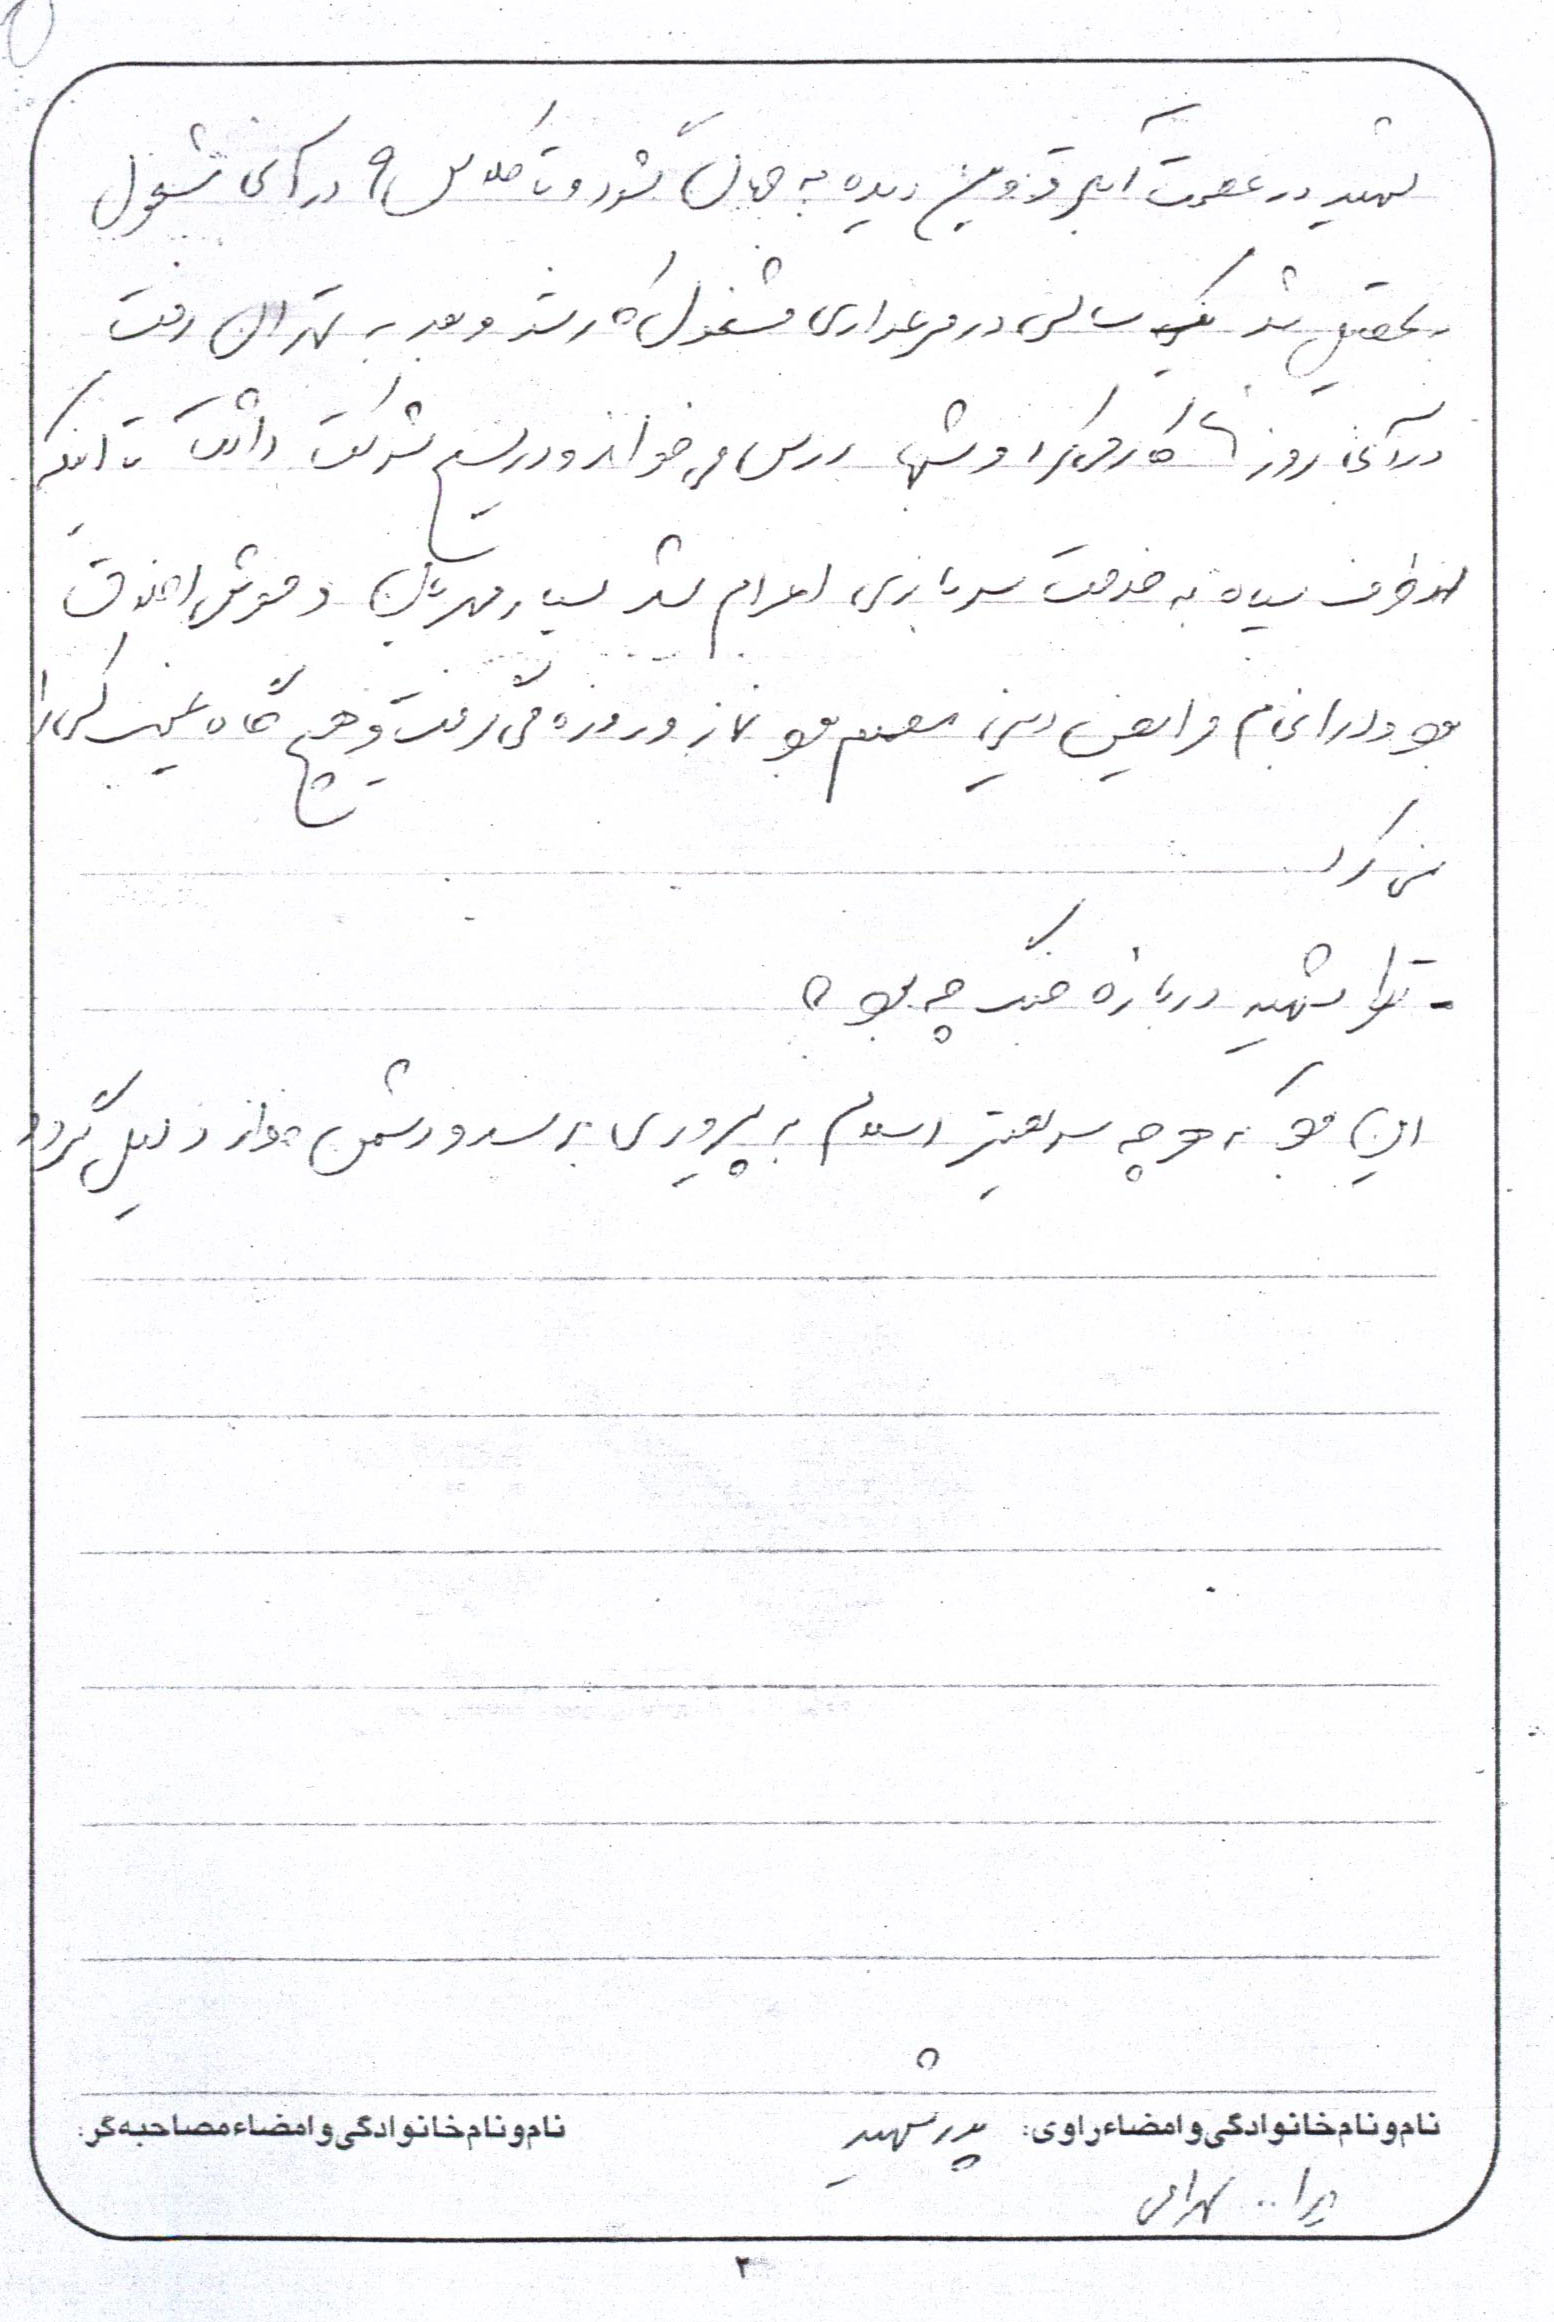 شهید در عصمت آباد قزوین دیده به جهان گشود و تا کلاس ۹ در آنجا مشغول
به تحصیل شد یک سالی در مرغداری مشغول کار شد و بعد به تهران رفت
در آنجا روزها کار می کرد و شبها درس می خواند و در بسیج شرکت داشت تا اینکه
از طرف سپاه به خدمت سربازی اعزام شد بسیار مهربان و خوش اخلاق
بود و در انجام فرایض دینی مصمم بود نماز و روزه می گرفت و هیچ گاه غیبت کسی را
نمی کرد
- نظر شهید درباره جنگ چه بود؟
این بود که هر چه سریعتر اسلام به پیروزی برسد و دشمن خوار و ذلیل گردد
نام و نام خانوادگی و امضاء راوی: پدر شهید
نام و نام خانوادگی و امضاء مصاحبه گر:
بهرامی
۳